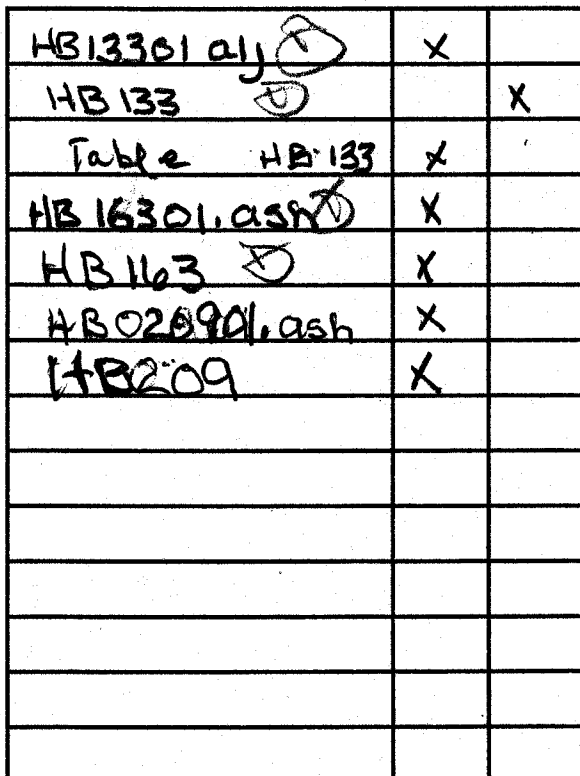 HB13301 alj X
HB 133 X
Table HB 133 X
HB 16301.ash X
HB 163 X
HB020901.ash X
HB209 X